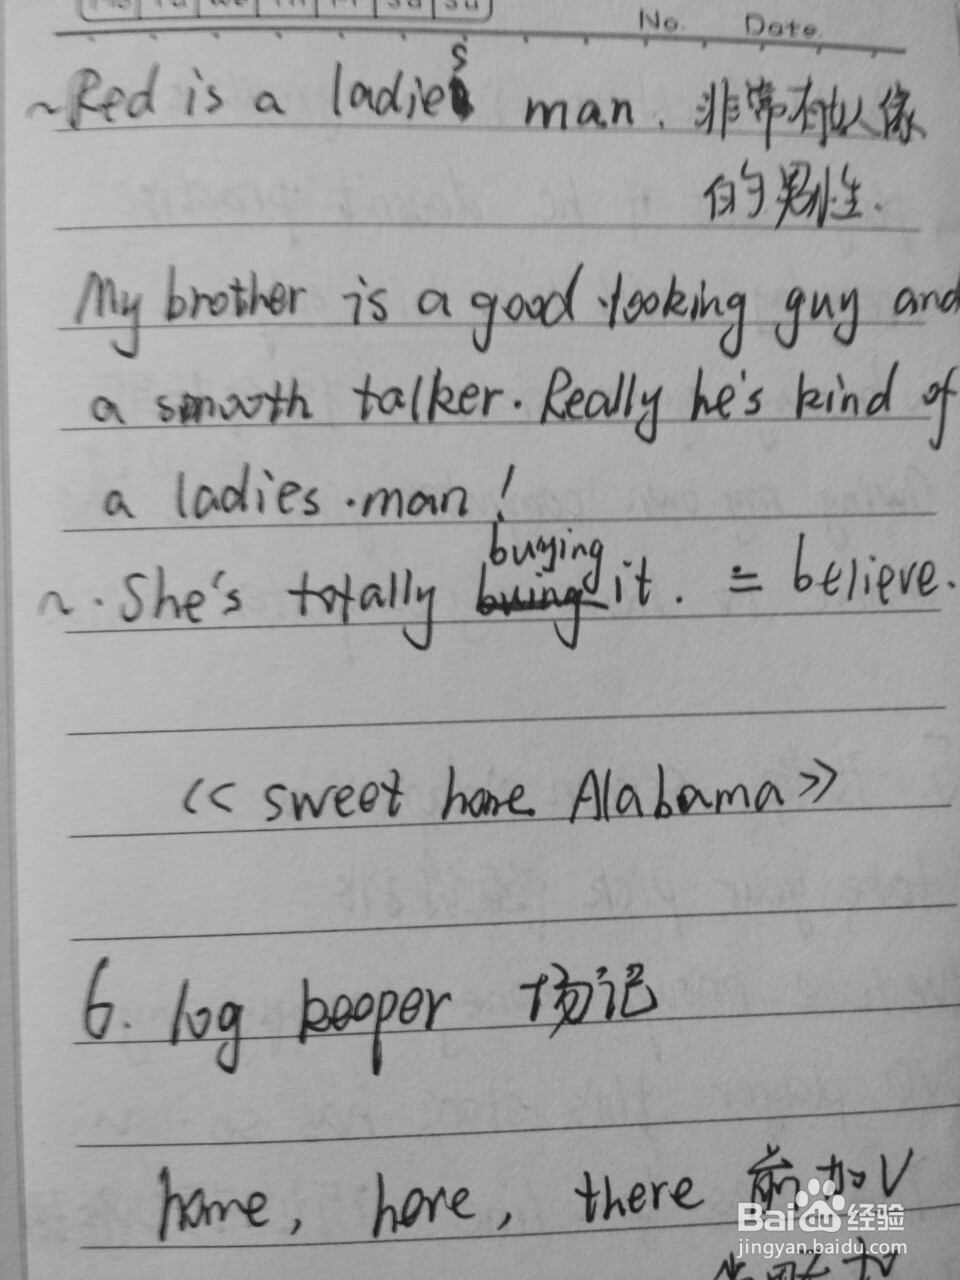 Mo Tu We Th Fr Sa Su
No. Date
~Red is a ladies man. 非常有女人缘
的男性.
My brother is a good-looking guy and
a smooth talker. Really he's kind of
a ladies.man!
buying
~. She's totally buing it. = believe.
<< sweet home Alabama >>
6. log keeper 场记
home, here, there 前加V
Baidu 经验
jingyan.baidu.com